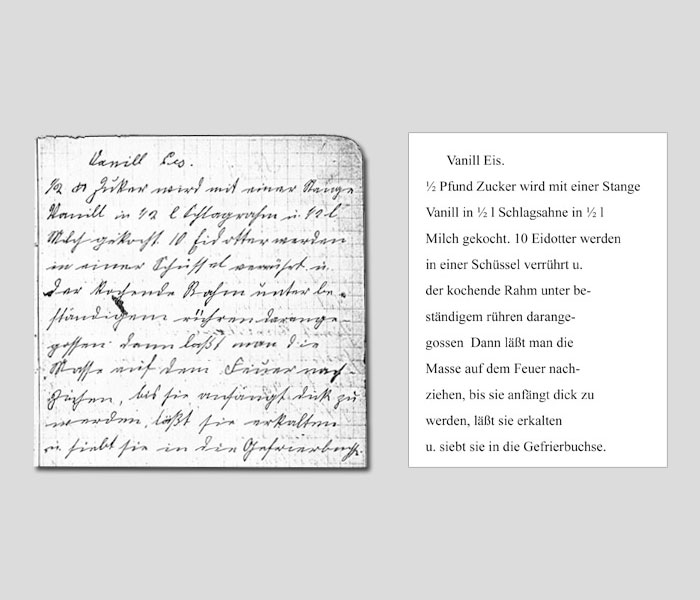 Vanill Eis.
½ ℔ Zuker wird mit einer Stange
Vanill in ½ l Schlagrahm u. ½ l
Milch gekocht. 10 Eidotter werden
in einer Schüssel verrührt u.
der kochende Rahm unter be-
ständigem rühren darange-
gossen. dann laßt man die
Masse auf dem Feuer nach-
ziehen, bis sie anfängt dick zu
werden, läßt sie erkalten
u. siebt sie in die Gefrierbuchse.
Vanill Eis.
½ Pfund Zucker wird mit einer Stange
Vanill in ½ l Schlagsahne in ½ l
Milch gekocht. 10 Eidotter werden
in einer Schüssel verrührt u.
der kochende Rahm unter be-
ständigem rühren darange-
gossen Dann läßt man die
Masse auf dem Feuer nach-
ziehen, bis sie anfängt dick zu
werden, läßt sie erkalten
u. siebt sie in die Gefrierbuchse.